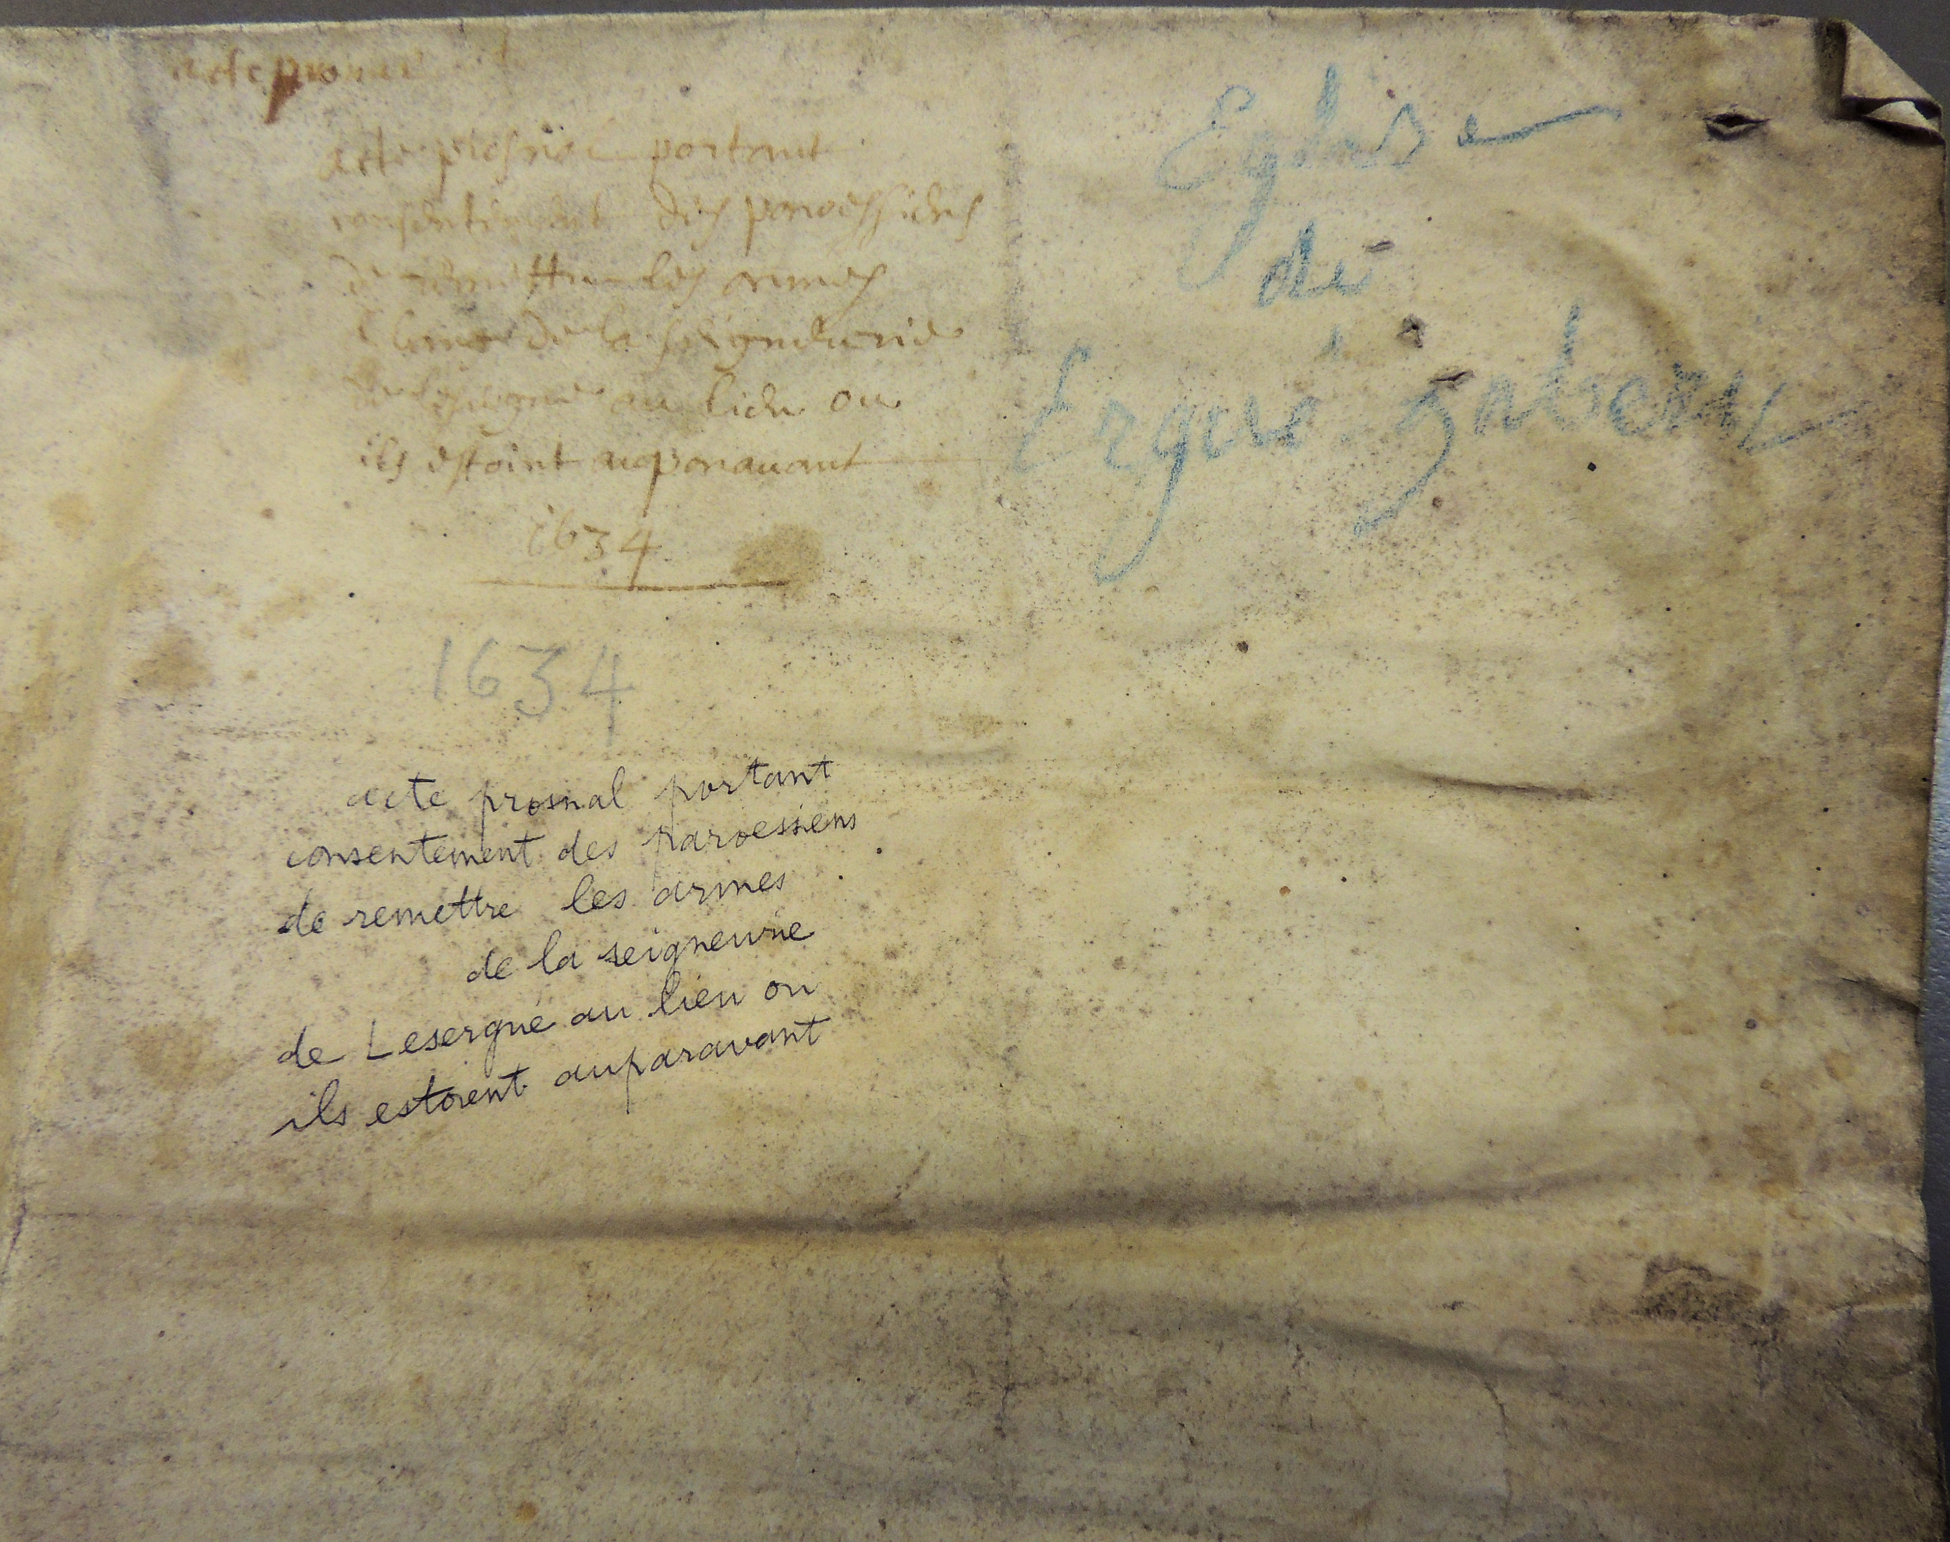 acte prosnal
acte prosnal portant
consentement des paroessiens
de remettre les armes
de la seigneurie
au lieu ou
ils estoint auparavant
1634
Eglise
de
Ergué-Gabéric
1634
acte prosnal portant
consentement des paroessiens
de remettre les armes
de la seigneurie
de Lesergué au lieu ou
ils estoient auparavant